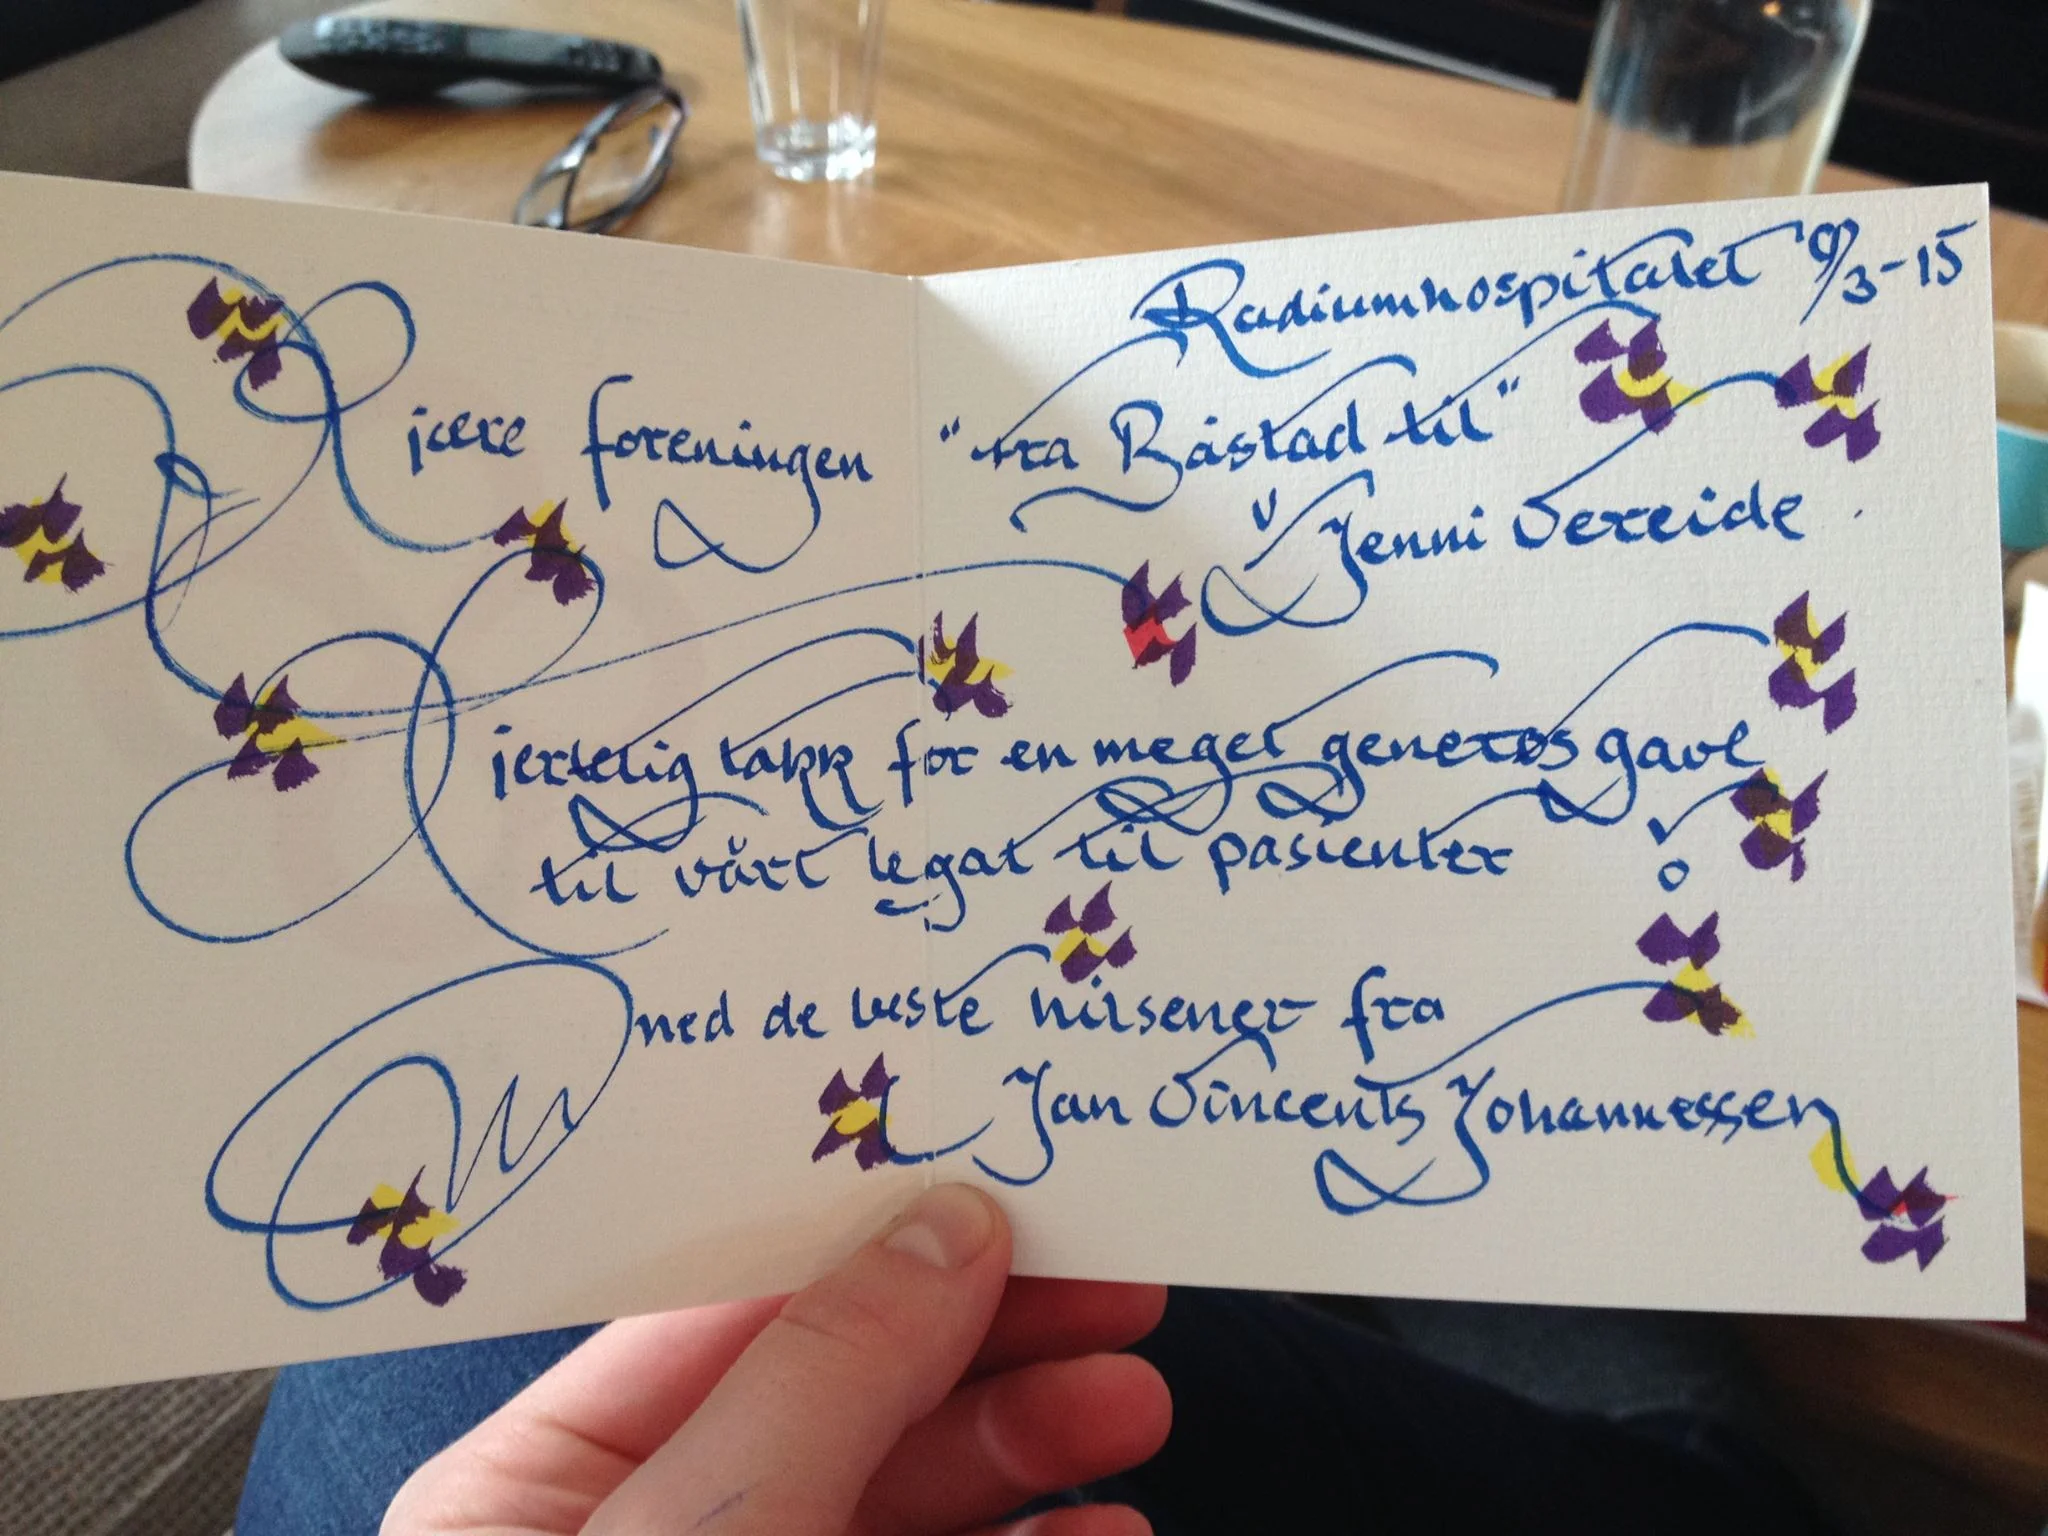 Radiumhospitalet 9/3-15
Kjære foreningen "fra Råstad til"
v/ Jenni Vereide
Hjertelig takk for en meget generøs gave
til vårt legat til pasienter!
Med de beste hilsener fra
Jan Vincents Johannessen